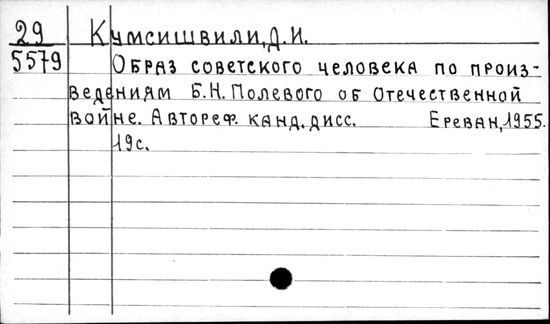 29 Кумсишвили, Д.И.
5579 Образ советского человека по произ-
ведениям Б.Н. Полевого об Отечественной
войне. Автореф. канд. дисс. Ереван, 1955.
19с.